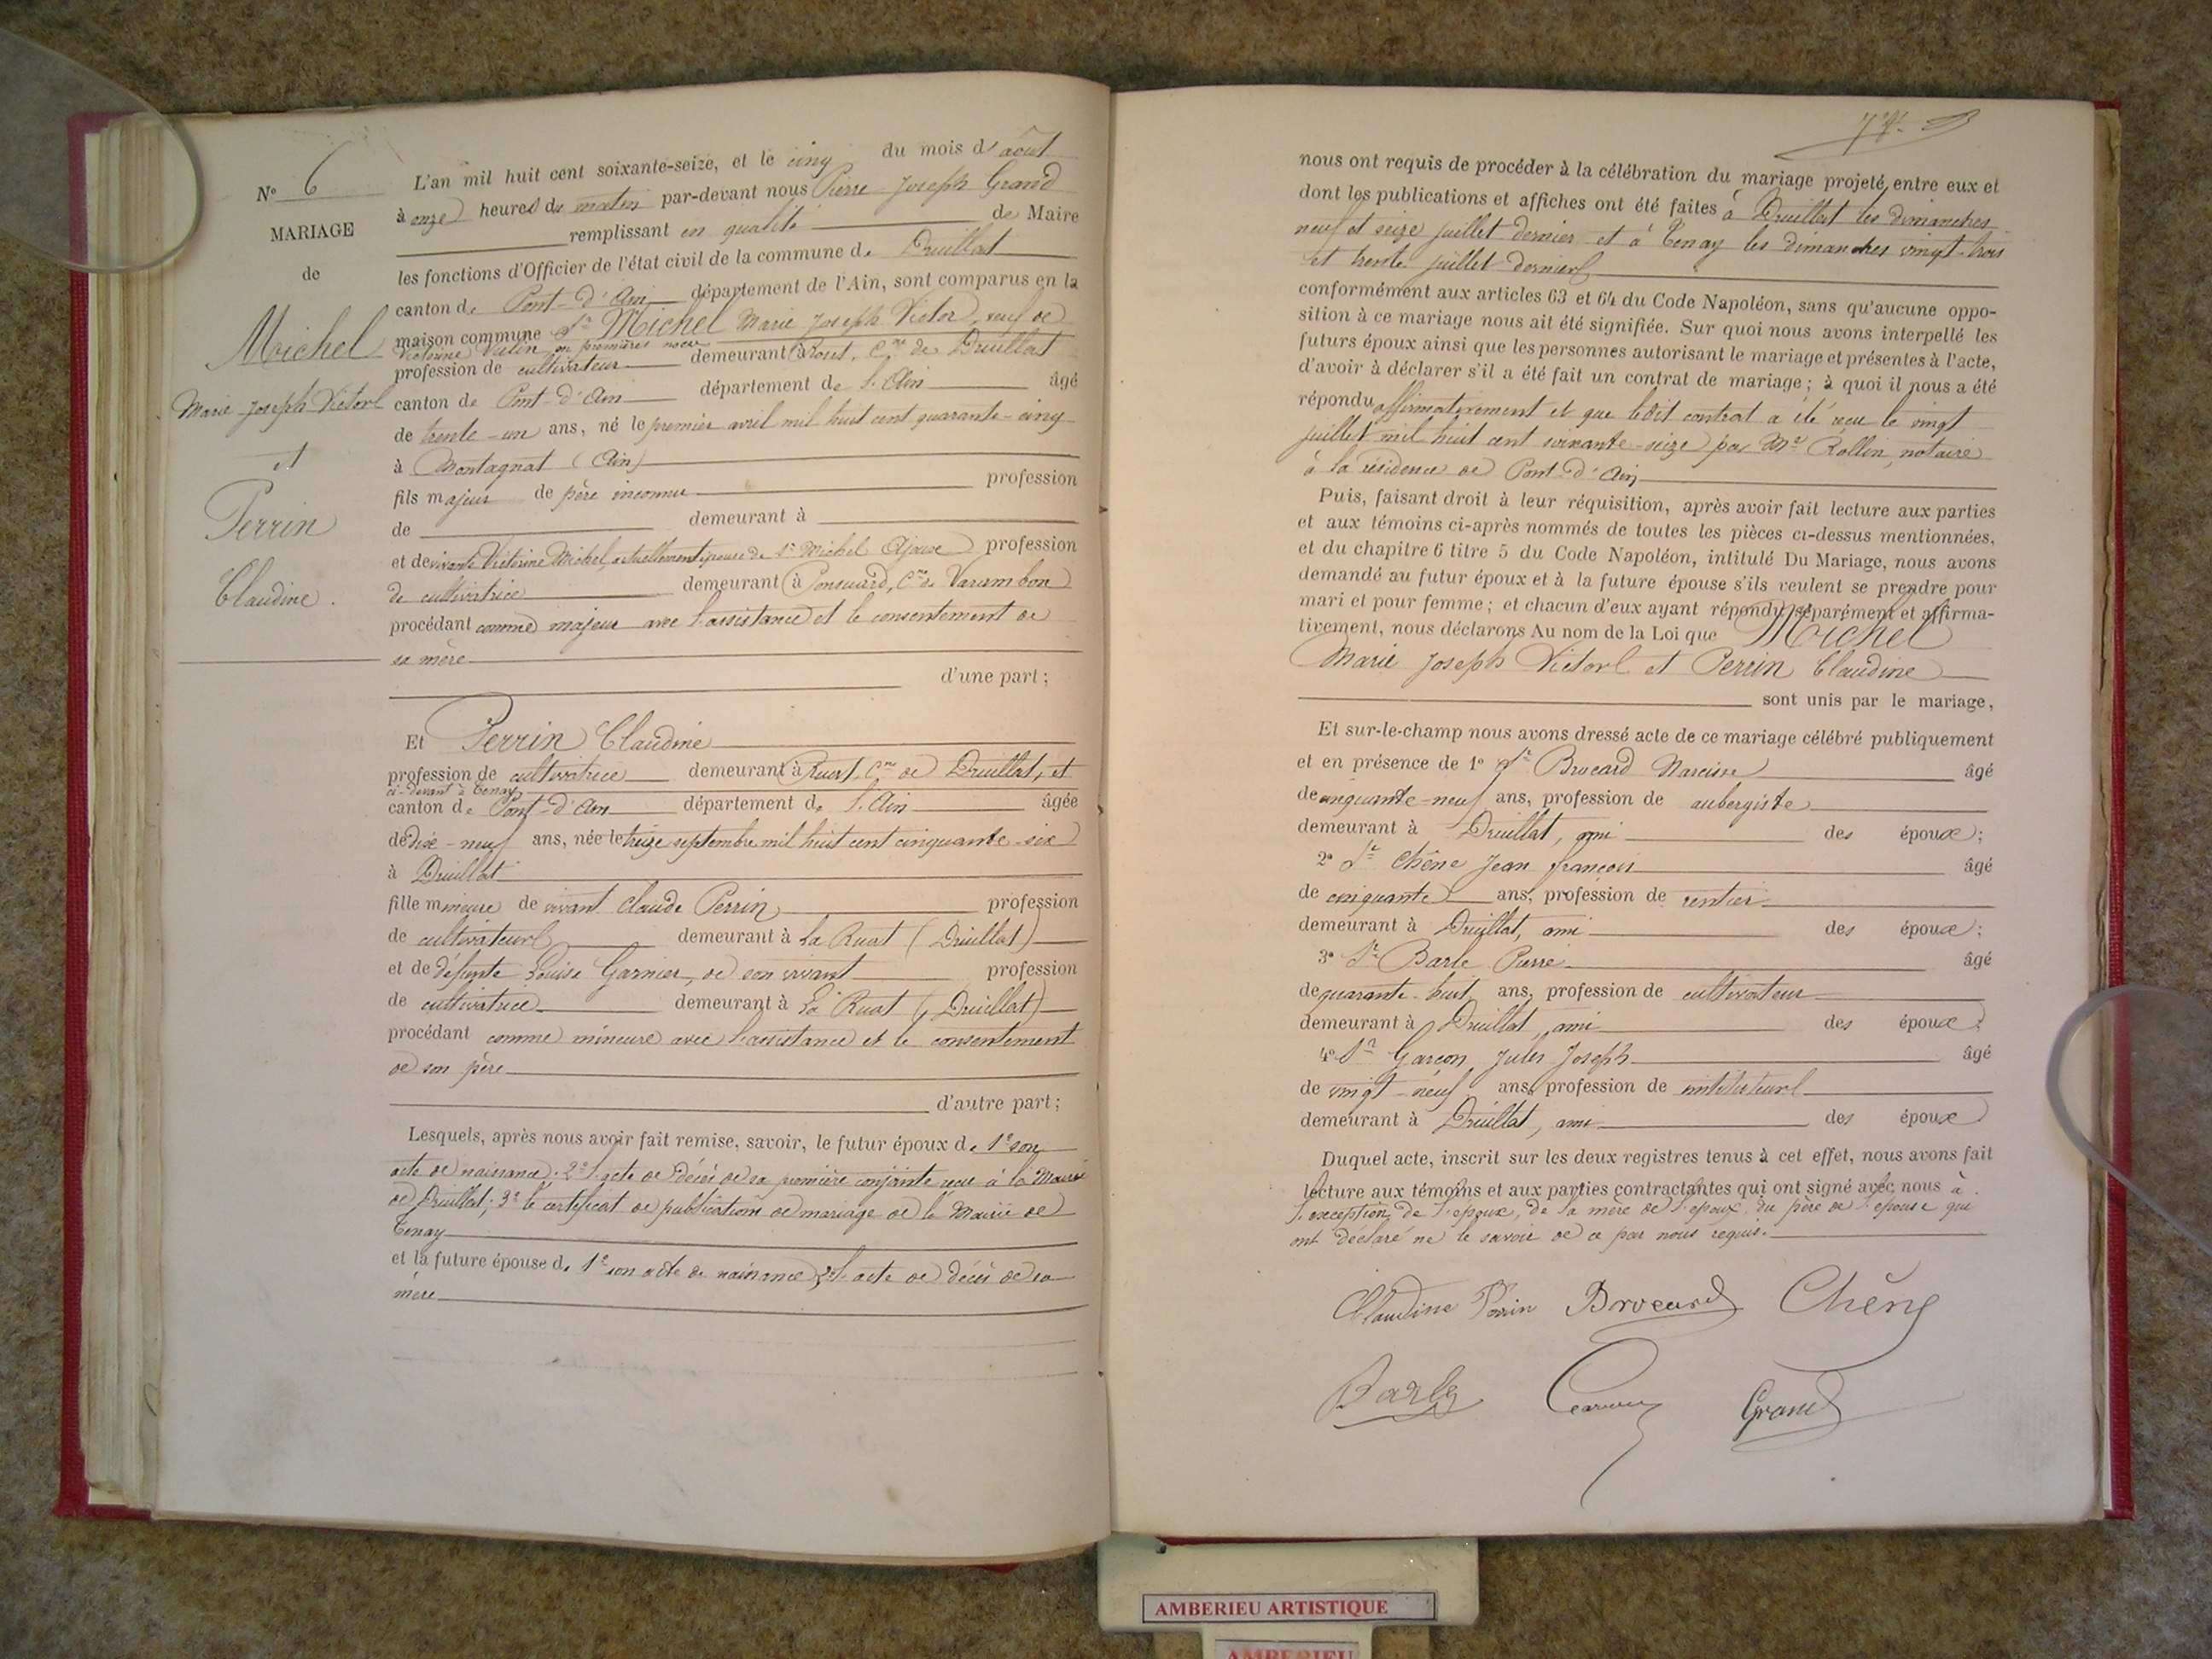 N° 6
MARIAGE
de
Michel
Marie Joseph Victor
et
Perrin
Claudine.
L'an mil huit cent soixante-seize, et le cinq du mois d'août
à onze heures du matin par-devant nous Pierre Joseph Grand
remplissant en qualité de Maire
les fonctions d'Officier de l'état civil de la commune de Druillat
canton de Pont-d'Ain département de l'Ain, sont comparus en la
maison commune Sr Michel Marie Joseph Victor, veuf de
Victorine en premières noces
profession de cultivateur demeurant à Cne de Druillat
canton de Pont-d'Ain département de l'Ain âgé
de trente-un ans, né le premier avril mil huit cent quarante-cinq
à Montagnat (Ain)
fils majeur de père inconnu profession
de demeurant à
et de vivante Victorine Michel, actuellement épouse de Sr Michel profession
de cultivatrice demeurant à Cne de Varambon
procédant comme majeur avec l'assistance et le consentement de
sa mère
d'une part;
Et Perrin Claudine
profession de cultivatrice demeurant à Ruat, Cne de Druillat, et
ci-devant à Tenay
canton de Pont-d'Ain département de l'Ain âgée
de dix-neuf ans, née le treize septembre mil huit cent cinquante-six
à Druillat
fille mineure de vivant Claude Perrin profession
de cultivateur demeurant à La Ruat (Druillat)
et de défunte Louise Garnier, de son vivant profession
de cultivatrice demeurant à La Ruat (Druillat)
procédant comme mineure avec l'assistance et le consentement
de son père
d'autre part;
Lesquels, après nous avoir fait remise, savoir, le futur époux de 1° son
acte de naissance; 2° l'acte de décès de sa première conjointe reçu à la Mairie
de Druillat; 3° le certificat de publications de mariage de la Mairie de
Tenay
et la future épouse de 1° son acte de naissance, 2° l'acte de décès de sa
mère
nous ont requis de procéder à la célébration du mariage projeté entre eux et
dont les publications et affiches ont été faites à Druillat les dimanches
neuf et seize juillet dernier et à Tenay les dimanches vingt-trois
et trente juillet dernier
conformément aux articles 63 et 64 du Code Napoléon, sans qu'aucune oppo-
sition à ce mariage nous ait été signifiée. Sur quoi nous avons interpellé les
futurs époux ainsi que les personnes autorisant le mariage et présentes à l'acte,
d'avoir à déclarer s'il a été fait un contrat de mariage; à quoi il nous a été
répondu affirmativement et que ledit contrat a été reçu le vingt
juillet mil huit cent soixante-seize par Me Rollin, notaire
à la résidence de Pont-d'Ain
Puis, faisant droit à leur réquisition, après avoir fait lecture aux parties
et aux témoins ci-après nommés de toutes les pièces ci-dessus mentionnées,
et du chapitre 6 titre 5 du Code Napoléon, intitulé Du Mariage, nous avons
demandé au futur époux et à la future épouse s'ils veulent se prendre pour
mari et pour femme; et chacun d'eux ayant répondu séparément et affirma-
tivement, nous déclarons Au nom de la Loi que Michel
Marie Joseph Victor et Perrin Claudine
sont unis par le mariage,
Et sur-le-champ nous avons dressé acte de ce mariage célébré publiquement
et en présence de 1° Sr Brocard Narcisse âgé
de cinquante-neuf ans, profession de aubergiste
demeurant à Druillat, ami des époux;
2° Sr Chêne Jean françois âgé
de cinquante ans, profession de rentier
demeurant à Druillat, ami des époux;
3° Sr Barle Pierre âgé
de quarante-huit ans, profession de cultivateur
demeurant à Druillat, ami des époux;
4° Sr Garçon Jules Joseph âgé
de vingt-neuf ans, profession de instituteur
demeurant à Druillat, ami des époux
Duquel acte, inscrit sur les deux registres tenus à cet effet, nous avons fait
lecture aux témoins et aux parties contractantes qui ont signé avec nous à
l'exception de l'époux, de la mère de l'époux, du père de l'épouse qui
ont déclaré ne le savoir de ce par nous requis.
Claudine Perrin Brocard Chêne
Barle Garçon Grand
AMBERIEU ARTISTIQUE
AMBERIEU